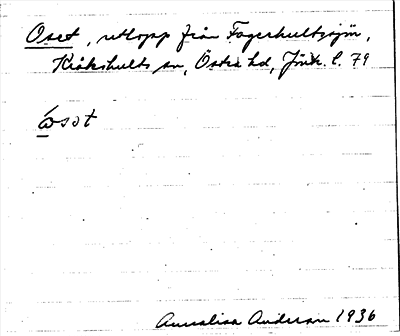 Oset, utlopp från Fagerhultsjön,
Kråkshults sn, Östra hd, Jönk. l. 79
òsət
Annalisa Andersson 1936